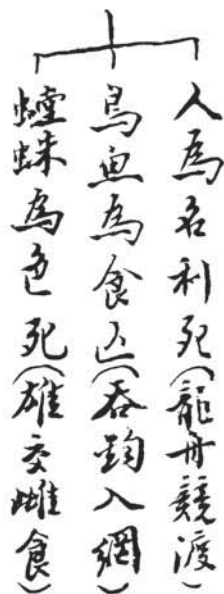 人為名利死(龍舟競渡)
鳥魚為食亡(吞鈎入網)
蟷蛛為色死(雄交雌食)